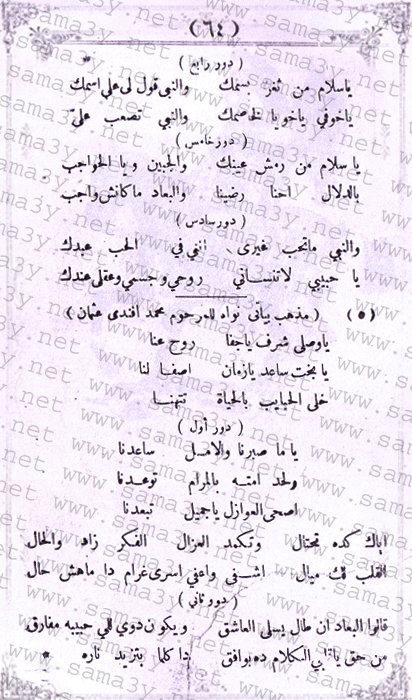 (٦٤)
(دور رابع)
يا سلام من ثغر بسمك والنبى قول لى على اسمك
ياخوفي ياخويا لخصمك والنبي تصعب علىّ
(دور خامس)
يا سلام من رمش عينك والجبين ويا الحواجب
بالدلال احنا رضينا والبعاد ماكانش واجب
(دور سادس)
والنبي ماتحب غيرى انفي في الحب عبدك
يا حبيبي لاتنساني روحي وجسمي وعقلى عندك
(٥) (مذهب بياتى نواه للمرحوم محمد افندى عثمان)
ياوصلى شرف ياجفا روح عنا
يابخت ساعد يازمان اصفا لنا
خلى الحبايب بالحياة تتهنا
(دور أول)
يا ما صبرنا والامل ساعدنا
ولحد امته بالمرام توعدنا
اصحى العوازل ياجميل تبعدنا
اياك كده تحتال وتكمد العزال الفكر زاد والحال
القلب لك ميال اشفى واعفي اسرى غرام دا ماهش حال
(دور ثاني)
قالوا البعاد ان طال يسلى العاشق ويكون دوي للي حبيبه مفارق
من حق ياقلبي الكلام ده يوافق دا كلما بتزيد ناره